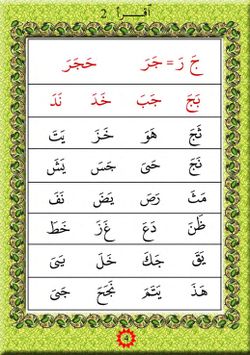 أقرأ 2
جَ رَ = جَرَ حَجَرَ
بَجَ جَبَ خَدَ نَدَ
ثَجَ هَوَ خَزَ يَتَ
نَجَ حَىَ جَسَ يَشَ
مَثَ رَصَ يَضَ نَفَ
ظَنَ دَعَ غَزَ خَطَ
يَقَ جَكَ خَلَ يَىَ
هَذَ يَتَمَ نَجَحَ جَىَ
4